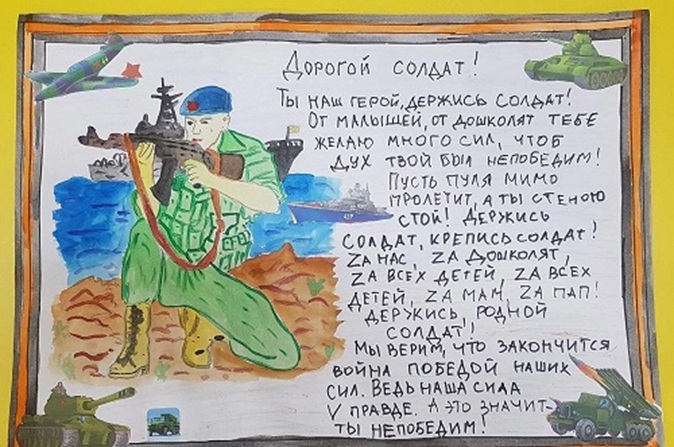 Дорогой солдат!
Ты наш герой, держись солдат!
От малышей, от дошколят тебе
желаю много сил, чтоб
дух твой был непобедим!
Пусть пуля мимо
пролетит, а ты стеною
стой! Держись
солдат, крепись солдат!
Zа нас, Zа дошколят,
Zа всех детей, Zа всех
детей, Zа мам, Zа пап!
Держись, родной
солдат!
Мы верим, что закончится
война победой наших
сил. Ведь наша сила
V правде. А это значит-
ты непобедим!